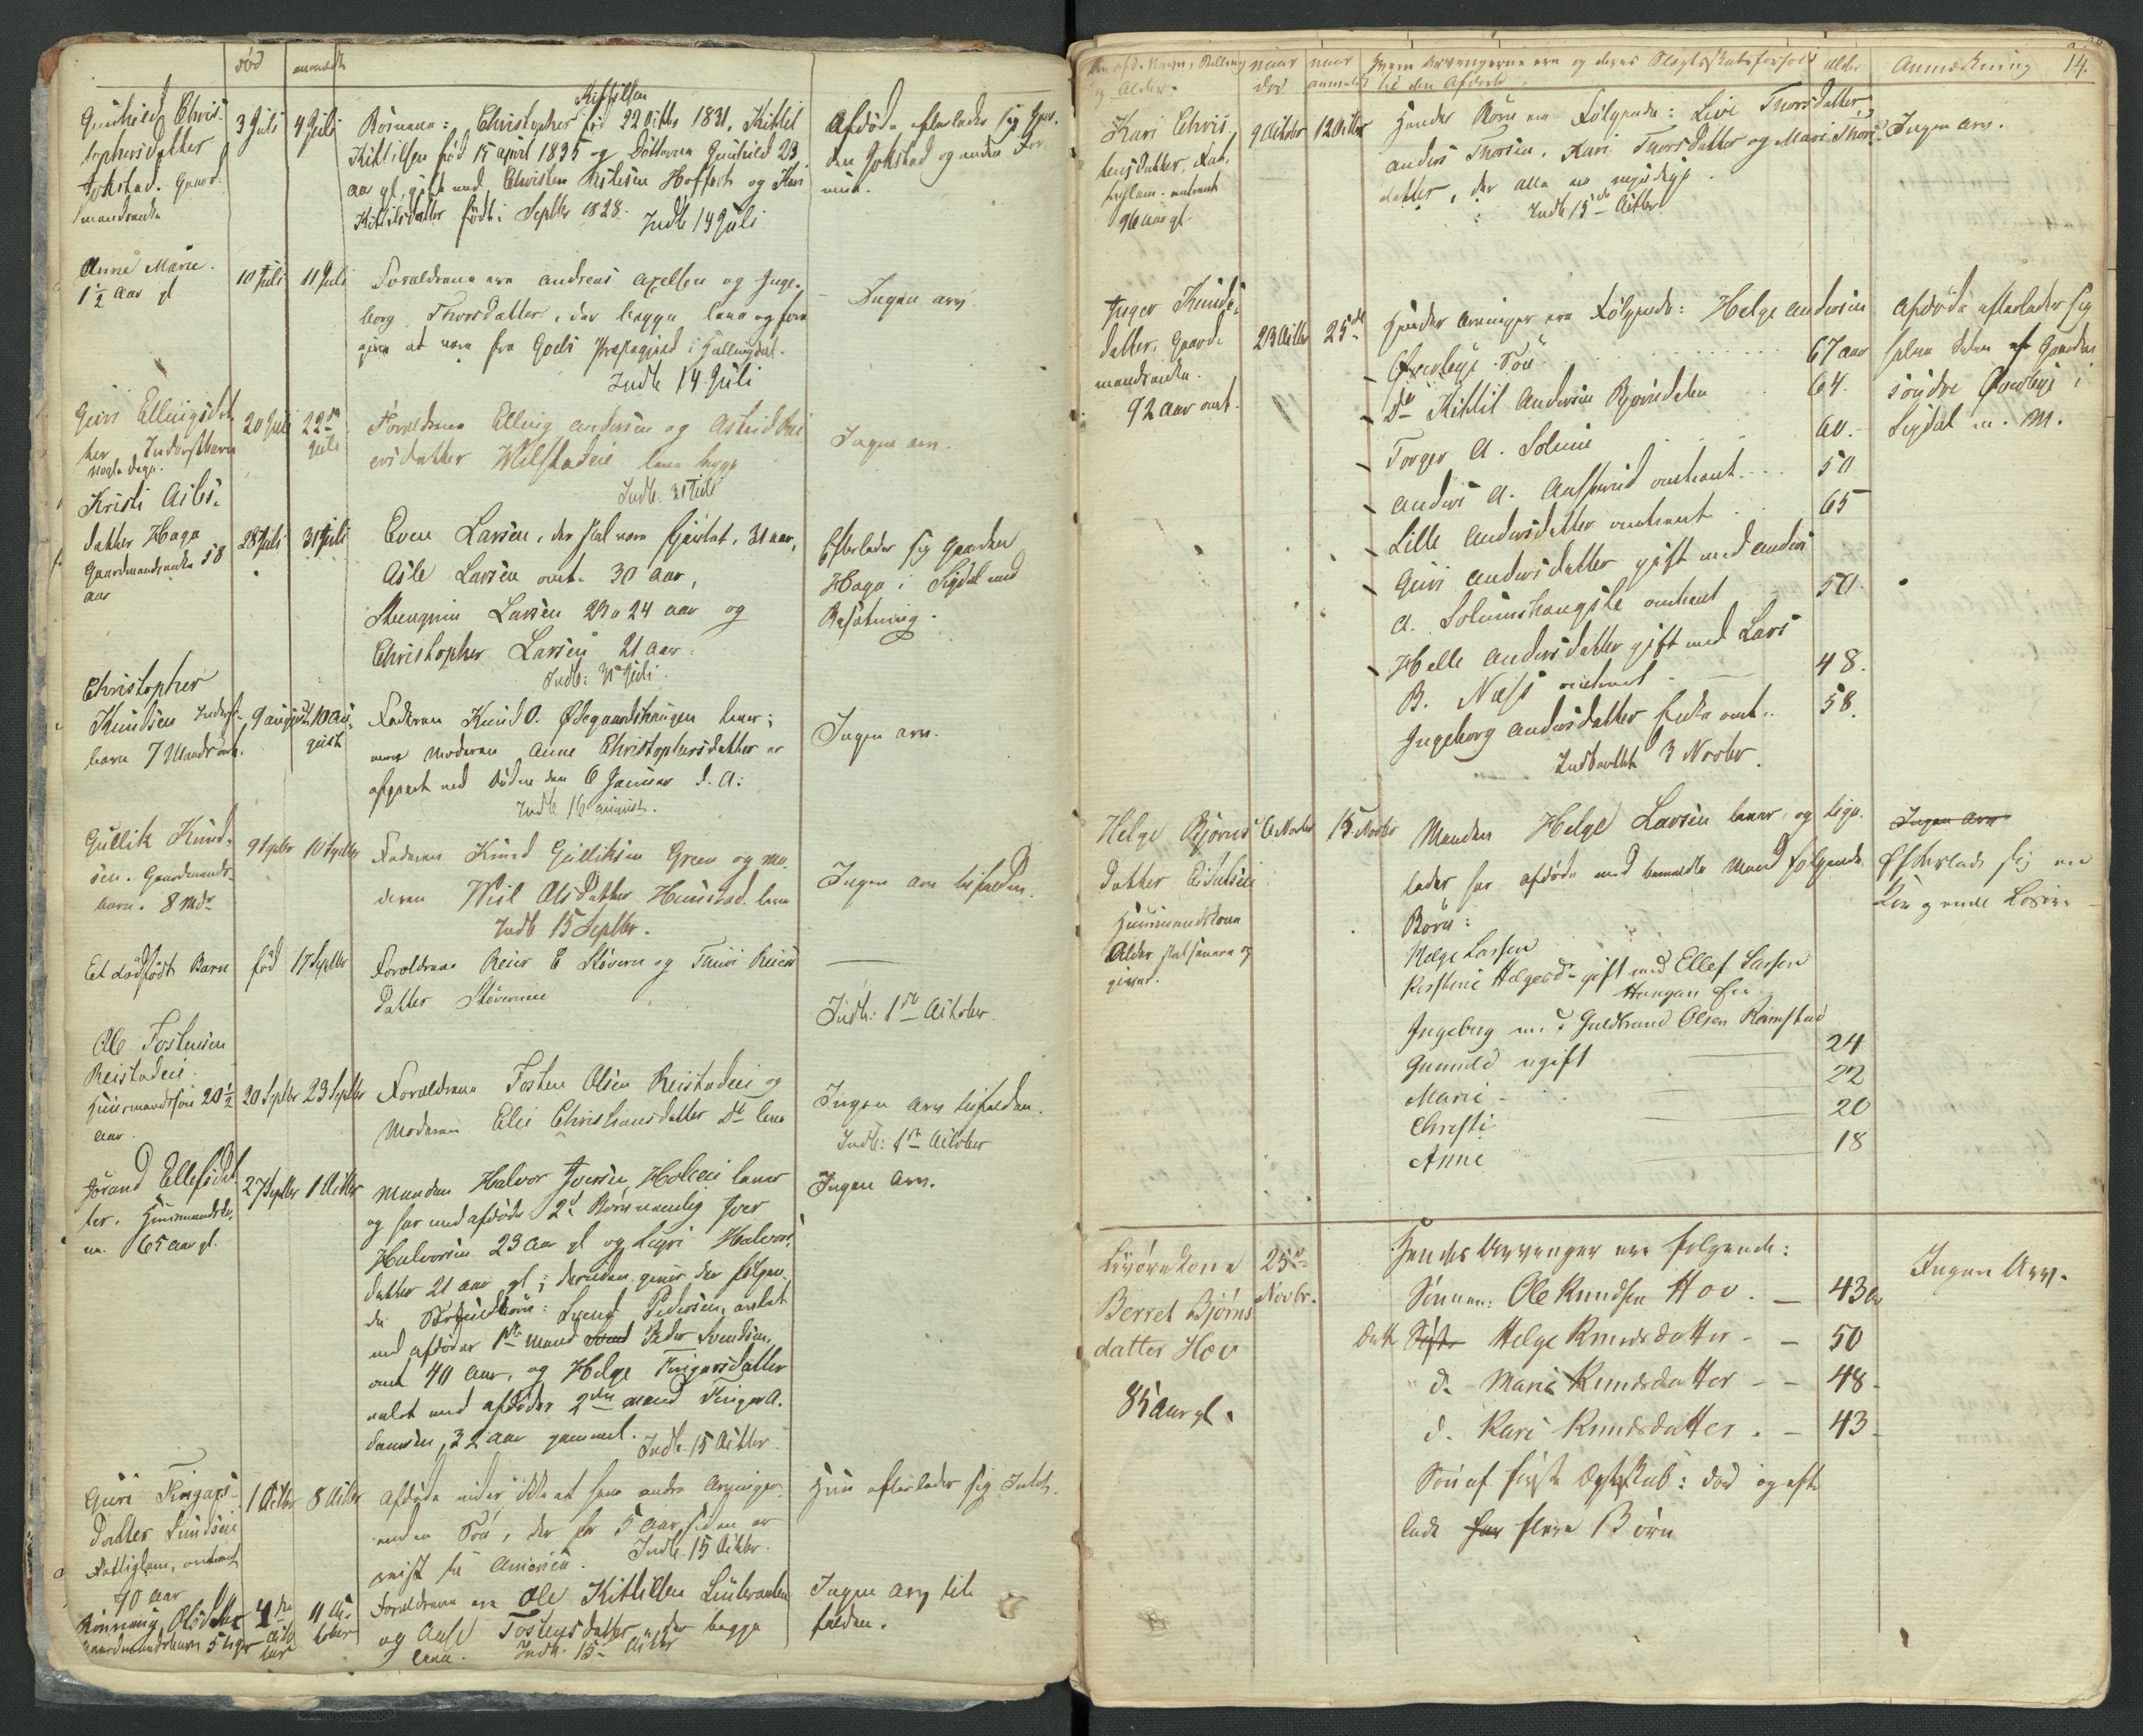 død
anmeldt
Gunhild Chris-
tophersdatter
Jokstad. Gaard-
mandsenke
3 Juli
4 Juli
Børnene: Christopher Kittilsen født 22 Octbr 1831, Kittil
Kittilsen født 15 april 1835 og Døttrene Gunhild 23
aar gl. gift med Christen Hoffart og Kari
Kittilsdatter født i Septbr 1828.
Indb 14 Juli
Afdøde efterlader sig Gaar-
den Jokstad og anden For-
mue.
Anne Marie.
1½ Aar gl
10 Juli
11 Juli
Forældrene ere Andreas Axelsen og Inge-
borg Thorsdatter, der begge leve og fore
give at være fra Goels Præstegjeld i Hallingdal.
Indb 14 Juli
Ingen arv
Guri Ellingsdat-
ter Inderstbarn
nogle Dage.
20 Juli
22de
Juli
Forældrene Elling Andersen og Astrid
ersdatter leve begge
Indb. 31 Juli
Ingen arv.
Kristi Asles-
datter Haga
Gaardmandsenke 58
aar
28 Juli
31 Juli
Even Larsen, der skal være, 31 aar,
Asle Larsen omt. 30 aar,
Stengrim Larsen 23 a 24 aar og
Christopher Larsen 21 aar.
Indb: 31 Juli.
Efterlader sig Gaarden
Haga i Sigdal med
Besætning.
Christopher
Knudsen Inderst-
barn 7 Maaneder omt.
9 august
10 au-
gust
Faderen Knud O. Ødegaardshaugen lever;
men Moderen Anne Christophersdatter er
afgaaet ved Døden den 6 Januar d. A:
Indb 16 august.
Ingen arv.
Gullik Knud-
sen. Gaardmands-
barn. 8 Mdr
9 Septbr
10 Septbr
Faderen Knud Gulliksen Green og Mo-
deren Olsdatter leve
Indb 15 Septbr.
Ingen arv tilfalden.
Et dødfødt Barn
født
17 Septbr
Forældrene Reier E Støveren og Thuri Reiers
datter Støveren
Indb: 1ste October
Ole Tostensen
Reistadeie.
Huusmandssøn 20½
aar.
20 Septbr
23 Septbr
Forældrene Tosten Olsen Reistadeie og
Moderen Eli Christiansdatter Do leve
Ingen Arv tilfalden.
Indb: 1ste October
Jørand Ellefsdat
ter. Huusmandsko-
ne. 65 aar gl.
27 Septbr
1 Octbr
Manden Halvor Iversen Holeeie lever
og har med afdøde 2de Børn nemlig Iver
Halvorsen 23 aar gl og Guri Halvors
datter 21 aar gl; desuden giver der følgen-
de: Svend Pedersen, avlet
med afdødes 1ste Mand Peder Svendsen,
omt 40 aar, og Helge Tingersdatter
avlet med afdødes 2den Mand Tinger A.
, 32 aar gammel.
Indb. 15 Octbr.
Ingen Arv.
Guri Tingers-
datter Lundseie
Fattiglem, omtrent
70 aar
1 Octbr
8 Octbr
Afdøde vides ikke at have andre Arvinger
end en Søn, der for 5 aar siden er
reist til America.
Indb. 15 Octbr.
Hun efterlader sig Intet.
Rønnaug Olsdatter
Gaardmandsbarn 5 Uger
4de
Octo
ber
11 Oc-
tober
Forældrene ere Ole Kittilsen
og Aase Tostensdatter, der begge
leve.
Indb. 15 Octbr
Ingen Arv til
falden.
14.
Den afd. Navn, Stilling
og Alder.
naar
død
naar
anmeldt
Hvem Arvingerne ere og deres Slægtskabsforhold
til den Afdøde
alder
Anmærkning
Kari Chris
tensdatter, Fat-
tiglem. omtrent
96 aar gl
9 October
12 Octbr
Hendes Børn ere Følgende: Livi Thorsdatter
Anders Thorsen, Kari Thorsdatter og Mari Thors-
datter, der alle ere myndige.
Indb 15de Octbr
Ingen arv.
Inger Knuds-
datter, Gaard-
mandsenke.
92 aar omt.
23 Octbr
25de
Hendes Arvinger ere Følgende: Helge Andersen
Øverbye Søn
67 aar
Do Kittil Andersen Bjørndalen
64.
Torger A. Solum
60.
Anders A. omtrent
50
Lille Andersdatter omtrent
65
Guri Andersdatter gift med Anders
A. Solumshaugste omtrent
50.
Helle Andersdatter gift med Lars
B. Næss omtrent
48.
Ingeborg Andersdatter Enke omt.
58.
Indberettet 3 Novbr.
Afdøde efterlader sig
halve Delen af Gaarden
søndre Øverbye i
Sigdal m. M.
Helge Bjørns-
datter
Huusmandskone
Alder skal senere op
gives.
6 Novbr
15 Novbr
Manden Helge Larsen lever, og lige-
ledes har afdøde med bemeldte Mand følgende
Børn:
Helge Larsen
Kirstine Helgesdr gift med Ellef Larsen
Haugan Eie
Ingeborg m. Guldbrand Olsen Ramstad
Gunnild ugift
24
Marie
22
Christi
20
Anne
18
Ingen arv
Efterlader sig en
Koe og noget Løsøre
Livørekone
Berret Bjørns
datter Hov
85 Aar gl.
25de
Novbr.
Hendes Arvinger ere følgende:
Sønnen: Ole Knudsen Hov.
43 Aar
Datt Helge Knudsdatter
50
d. Marie Knudsdatter
48
d. Kari Knudsdatter
43
Søn af første Ægteskab: død og efter-
lade flere Børn
Ingen Arv.